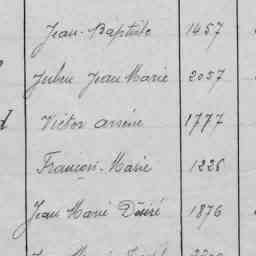 Jean-Baptiste 1457
Julien Jean Marie 2057
Victor Arsène 1777
François-Marie 1226
Jean Marie Désiré 1876